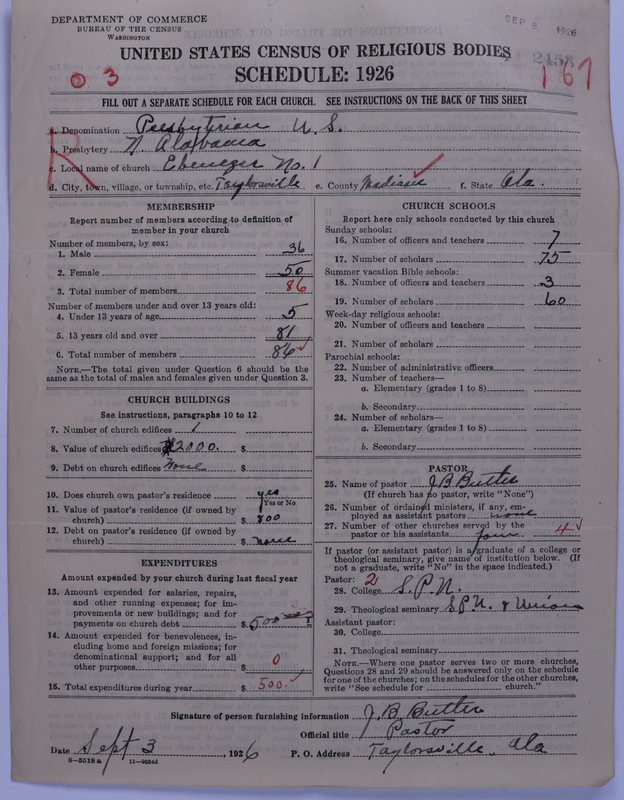 DEPARTMENT OF COMMERCE
BUREAU OF THE CENSUS
WASHINGTON
SEP 8 1926
UNITED STATES CENSUS OF RELIGIOUS BODIES
SCHEDULE: 1926
2458
03
167
FILL OUT A SEPARATE SCHEDULE FOR EACH CHURCH. SEE INSTRUCTIONS ON THE BACK OF THIS SHEET
a. Denomination Presbyterian U.S.
b. Presbytery N. Alabama
c. Local name of church Ebenezer No. 1
d. City, town, village, or township, etc. Taylorsville e. County Madison f. State Ala.
MEMBERSHIP
Report number of members according to definition of member in your church
Number of members, by sex:
1. Male 36
2. Female 50
3. Total number of members 86
Number of members under and over 13 years old:
4. Under 13 years of age 5
5. 13 years old and over 81
6. Total number of members 86
NOTE.—The total given under Question 6 should be
same as the total of males and females given under Question 3.
CHURCH BUILDINGS
See instructions, paragraphs 10 to 12
7. Number of church edifices 1
8. Value of church edifices $2000. $
9. Debt on church edifices None $
10. Does church own pastor's residence yes
Yes or No
11. Value of pastor's residence (if owned by
church) $ 800
12. Debt on pastor's residence (if owned by
church) $ none
EXPENDITURES
Amount expended by your church during last fiscal year
13. Amount expended for salaries, repairs,
and other running expenses; for im-
provements or new buildings; and for
payments on church debt $ 500
14. Amount expended for benevolences, in-
cluding home and foreign missions; for
denominational support; and for all
other purposes $ 0
15. Total expenditures during year $ 500.
CHURCH SCHOOLS
Report here only schools conducted by this church
Sunday schools:
16. Number of officers and teachers 7
17. Number of scholars 75
Summer vacation Bible schools:
18. Number of officers and teachers 3
19. Number of scholars 60
Week-day religious schools:
20. Number of officers and teachers
21. Number of scholars
Parochial schools:
22. Number of administrative officers
23. Number of teachers—
a. Elementary (grades 1 to 8)
b. Secondary
24. Number of scholars—
a. Elementary (grades 1 to 8)
b. Secondary
PASTOR
25. Name of pastor J.B. Butler
(If church has no pastor, write "None")
26. Number of ordained ministers, if any, em-
ployed as assistant pastors none
27. Number of other churches served by the
pastor or his assistants four 4
If pastor (or assistant pastor) is a graduate of a college or
theological seminary, give name of institution below. (If
not a graduate, write "No" in the space indicated.)
Pastor: 2
28. College S.P.U.
29. Theological seminary S.P.U. & Union
Assistant pastor:
30. College
31. Theological seminary
NOTE.—Where one pastor serves two or more churches,
Questions 28 and 29 should be answered only on the schedule
for one of the churches; on the schedules for the other churches,
write "See schedule for church."
Signature of person furnishing information J.B. Butler
Official title Pastor
Date Sept 3, 1926 P. O. Address Taylorsville, Ala
8—5518 a